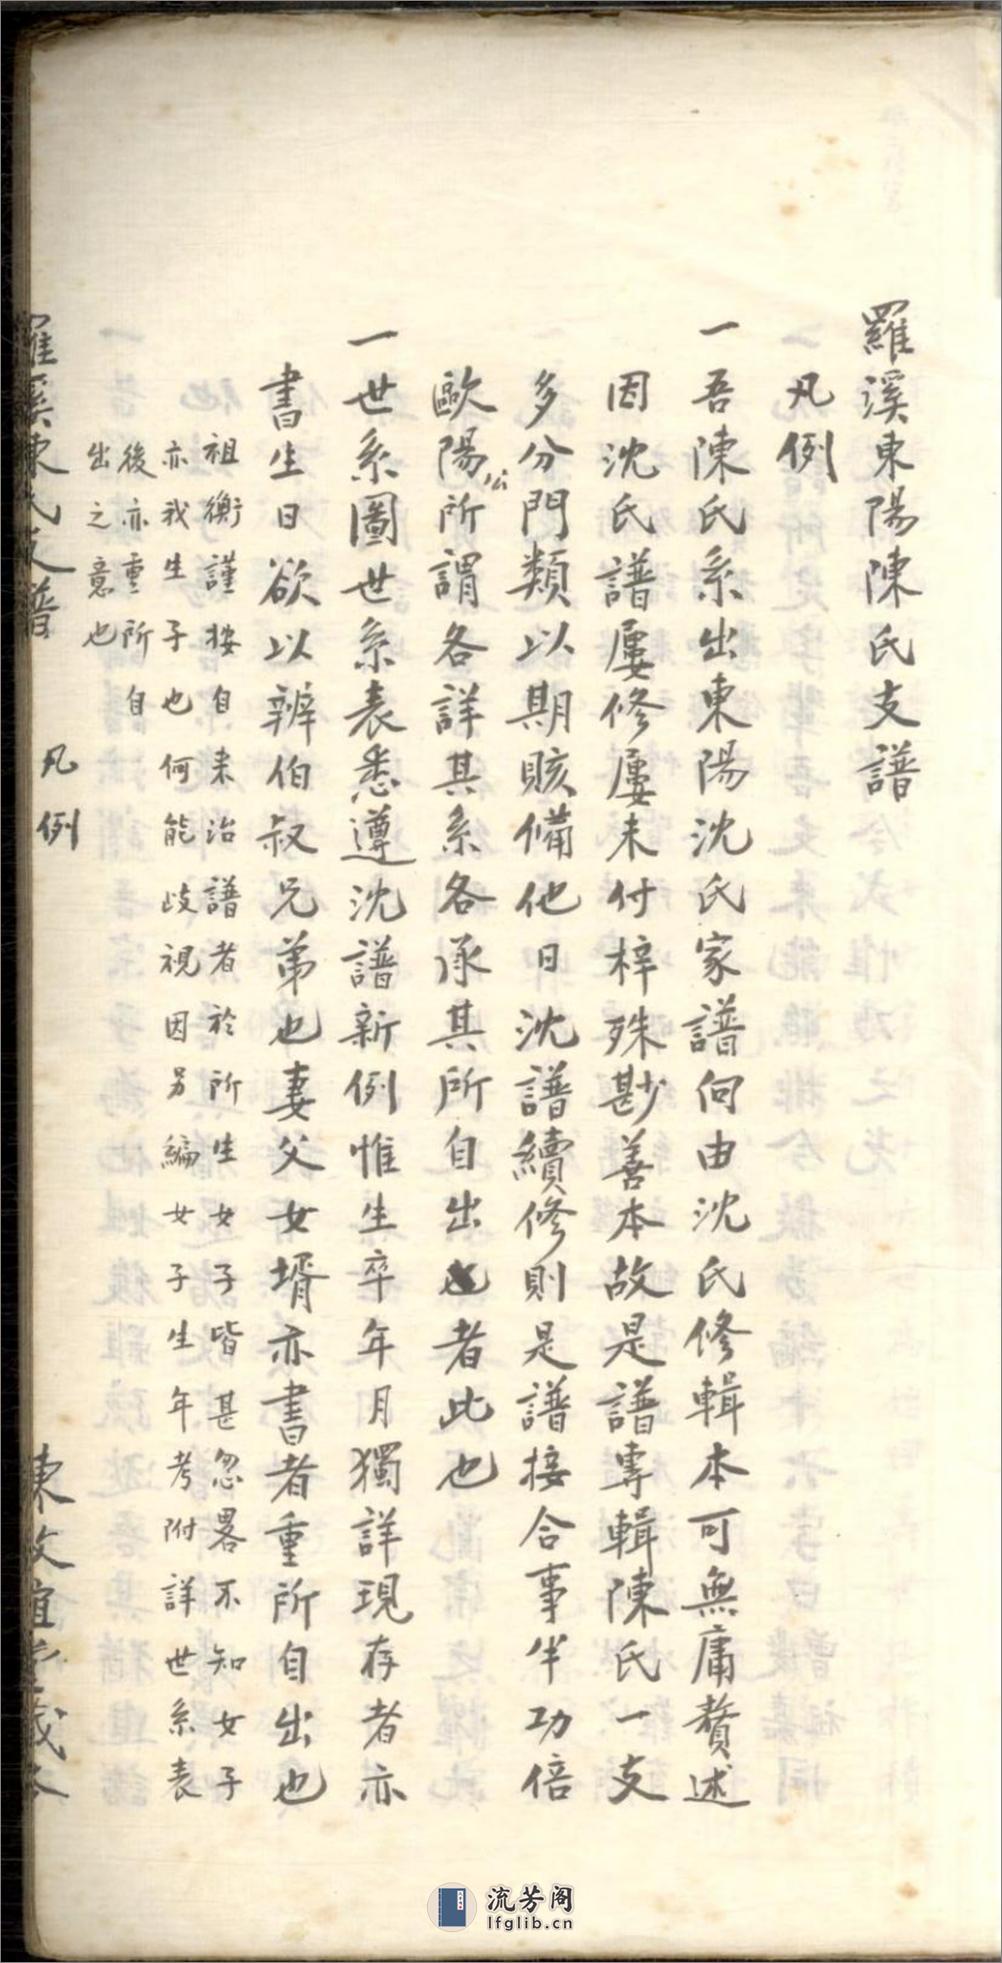 羅溪東陽陳氏支譜
凡例
一吾陳氏系出東陽沈氏家譜向由沈氏修輯本可無庸贅述
因沈氏譜屢修屢未付梓殊尠善本故是譜專輯陳氏一支
多分門類以期賅備他日沈譜續修則是譜接合事半功倍
歐陽公所謂各詳其系各承其所自出也者此也
一世系圖世系表悉遵沈譜新例惟生卒年月獨詳現存者亦
書生日欲以辨伯叔兄弟也妻父女壻亦書者重所自出也
祖衡謹按自來治譜者於所生女子皆甚忽畧不知女子
亦我生子也何能歧視因另編女子生年考附詳世系表
後亦重所自
出之意也
羅溪陳氏支譜 凡例 陳敦誼堂
流芳阁
lfglib.cn